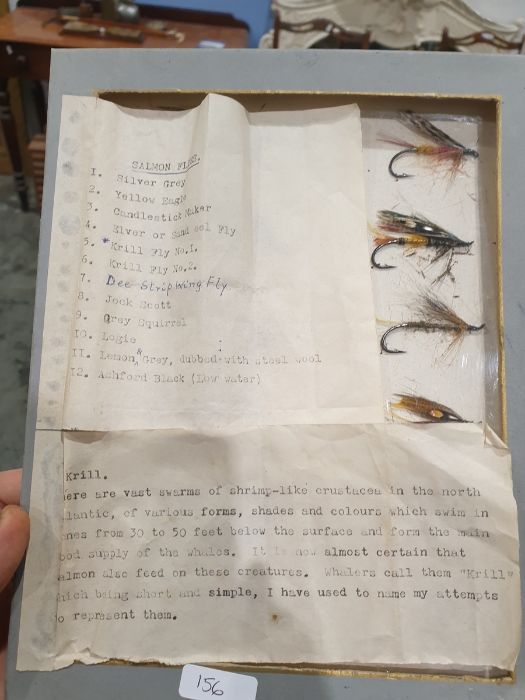 SALMON FLIES.
1. Silver Grey
2. Yellow Eagle
3. Candlestick Maker
4. Elver or Sand eel Fly
5. *Krill Fly No.1.
6. Krill Fly No.2.
7. Dee Strip wing Fly
8. Jock Scott
9. Grey Squirrel
10. Logie
11. Lemon & Grey, dubbed with steel wool
12. Ashford Black (Low water)
Krill.
ere are vast swarms of shrimp-like crustacea in the north
lantic, of various forms, shades and colours which swim in
nes from 30 to 50 feet below the surface and form the main
ood supply of the whales. It is now almost certain that
almon also feed on these creatures. Whalers call them "Krill"
hich being short and simple, I have used to name my attempts
o represent them.
156